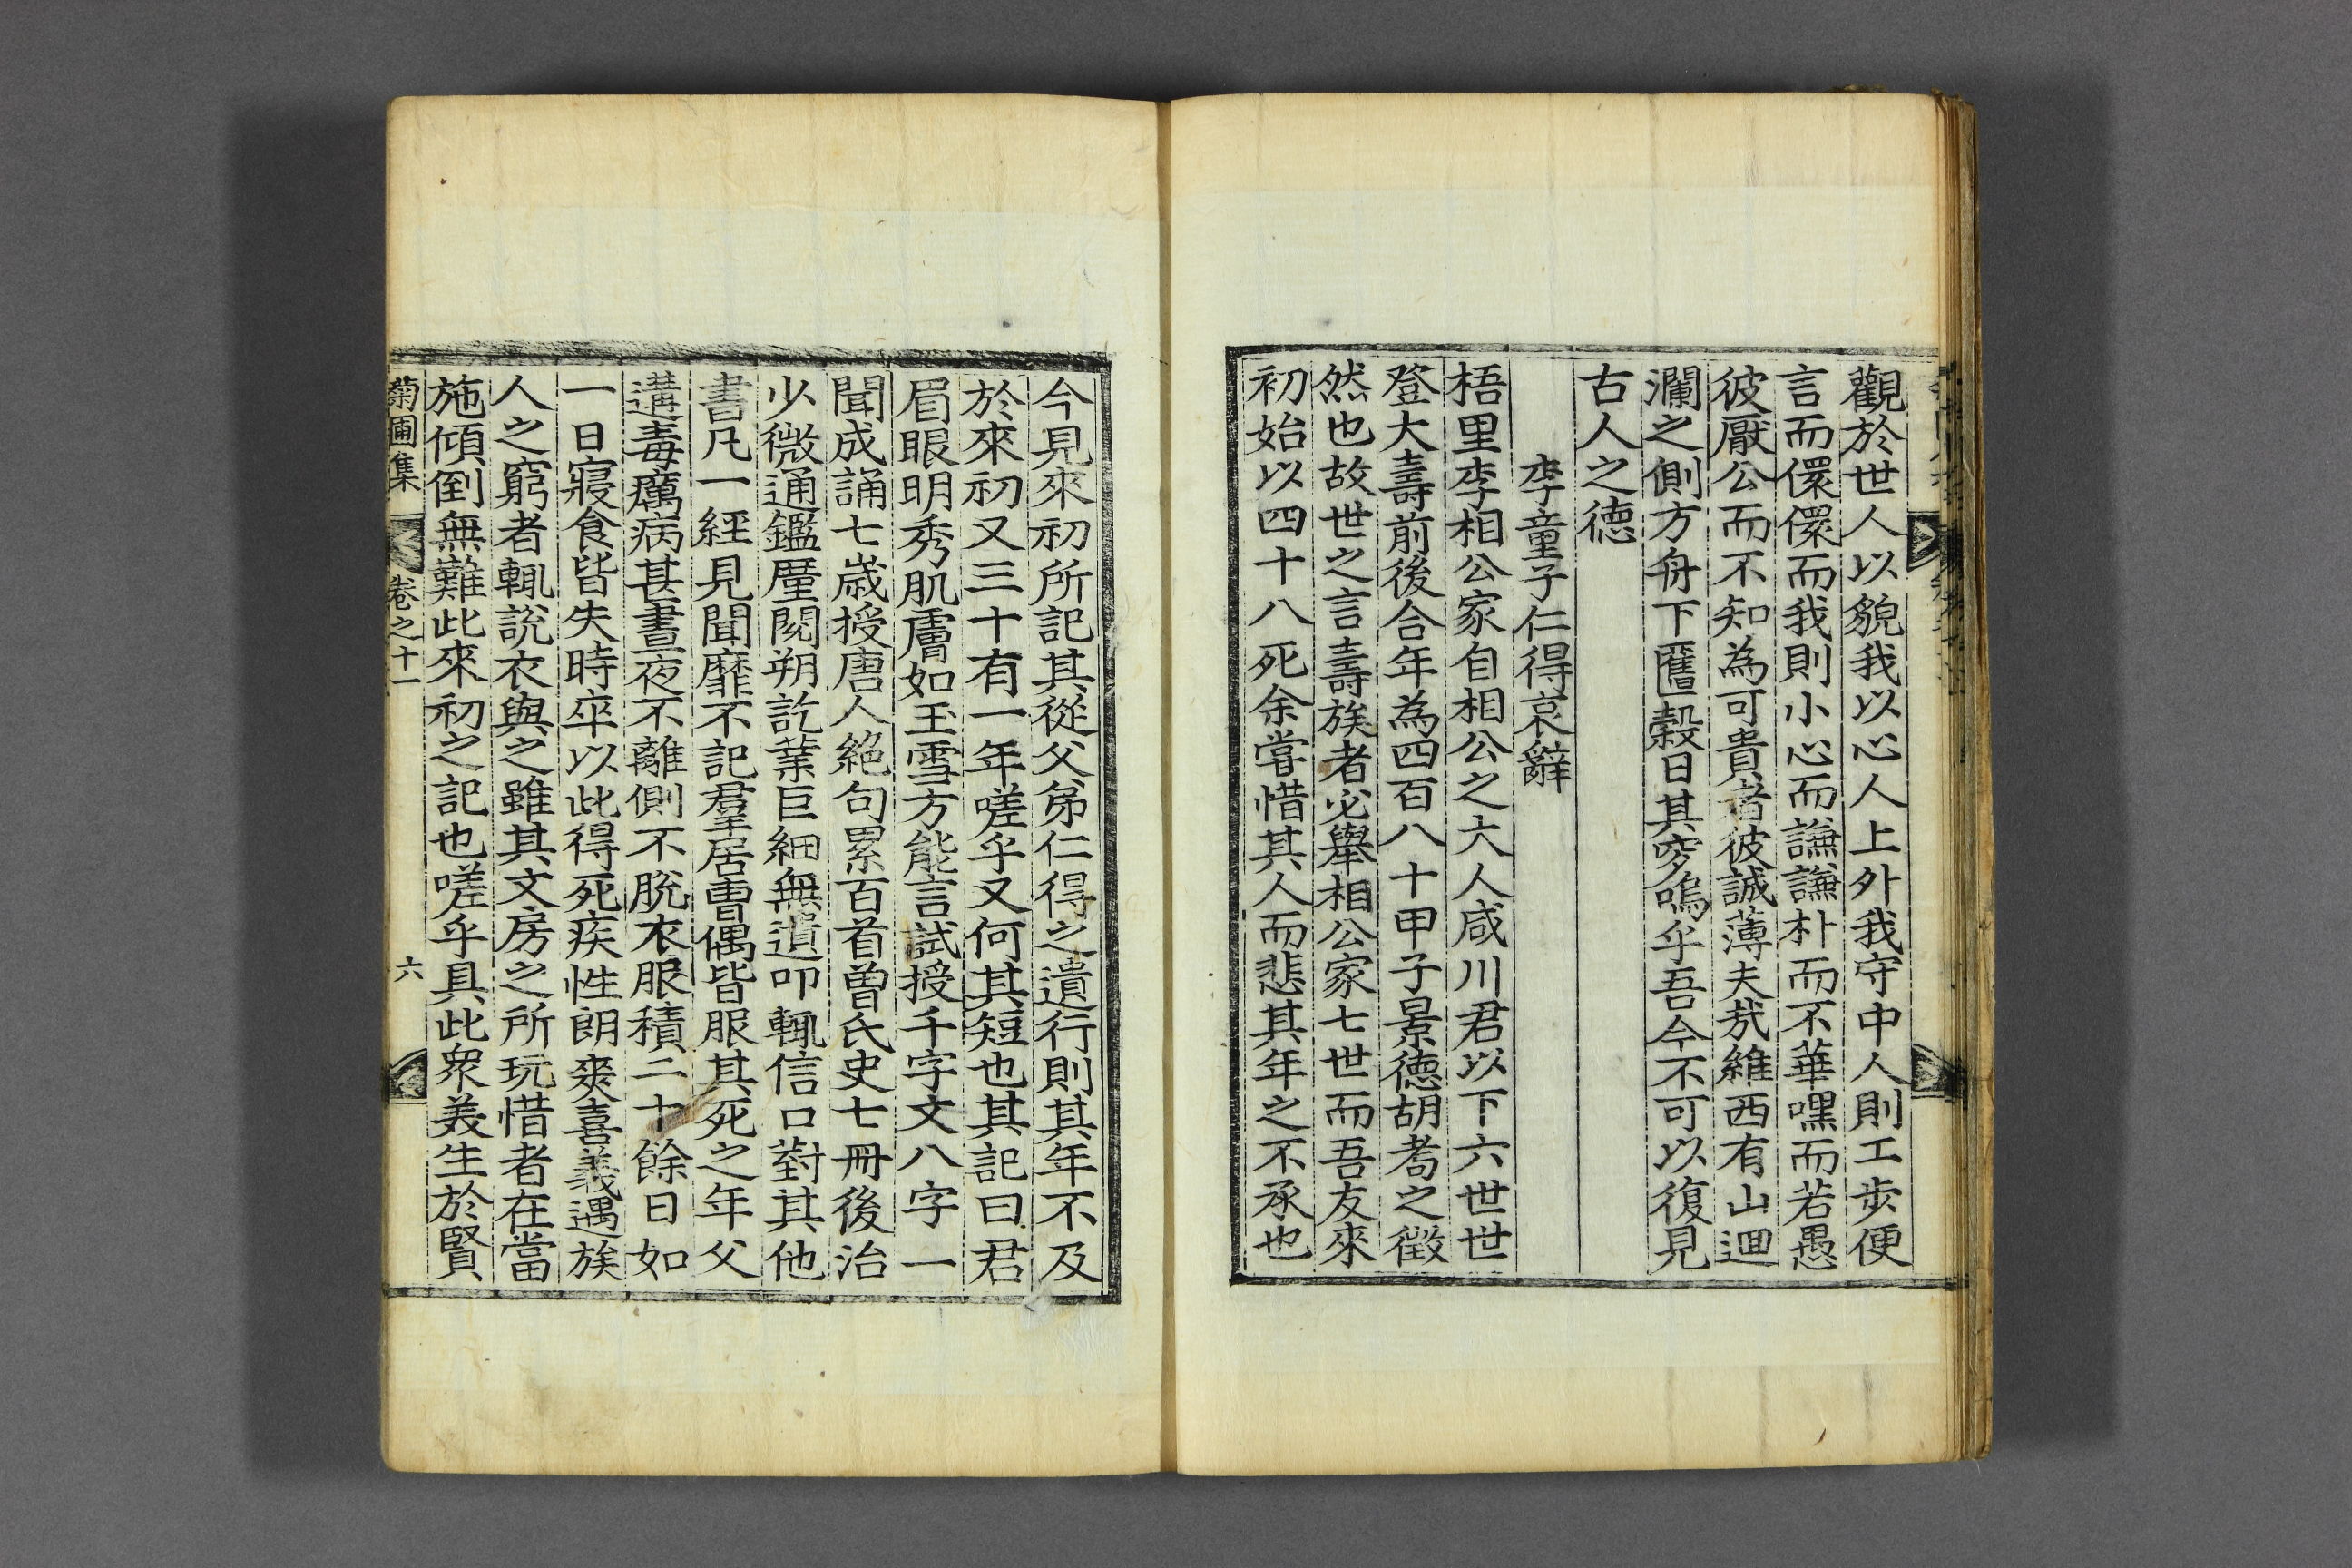 觀於世人以貌我以心人上外我守中人則工步便
言而儇儇而我則小心而謙謙朴而不華嘿而若愚
彼厭公而不知為可貴者彼誠薄夫㢤維西有山迴
瀾之側方舟下匶穀日其穸嗚乎吾今不可以復見
古人之德
李童子仁得哀辭
梧里李相公家自相公之大人咸川君以下六世世
登大壽前後合年為四百八十甲子景德胡耇之徵
然也故世之言壽族者必舉相公家七世而吾友來
初始以四十八死余嘗惜其人而悲其年之不承也
今見來初所記其從父弟仁得之遺行則其年不及
於來初又三十有一年嗟乎又何其短也其記曰君
眉眼明秀肌膚如玉雪方能言試授千字文八字一
聞成誦七歲授唐人絕句累百首曾氏史七冊後治
少微通鑑厪閱朔訖業巨細無遺叩輒信口對其他
書凡一經見聞靡不記羣居曹偶皆服其死之年父
遘毒癘病甚晝夜不離側不脫衣服積二十餘日如
一日寢食皆失時卒以此得死疾性朗爽喜義遇族
人之窮者輒說衣與之雖其文房之所玩惜者在當
施傾倒無難此來初之記也嗟乎具此衆美生於賢
菊圃集 卷之十一 六